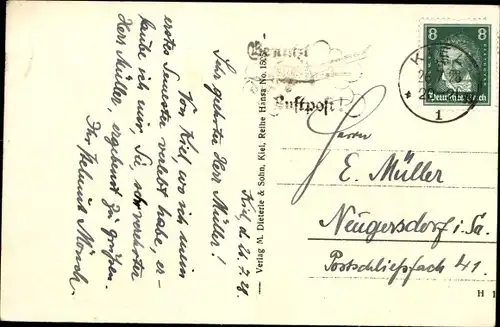 Kiel, d. 26.7.29.
Sehr geehrter Herr Müller!
Von Kiel, wo ich mein
erstes Semester verlebt habe, er-
laube ich mir, Sie, sehr verehrter
Herr Müller, ergebenst zu grüßen.
Ihr Helmut Mönch.
Verlag M. Dieterle & Sohn, Kiel, Reihe Hansa No. 180
Benutzt
Luftpost!
8 8
Deutsches Reich
1
Herrn
E. Müller
Neugersdorf i. Sa.
Postschließfach 41.
H 1